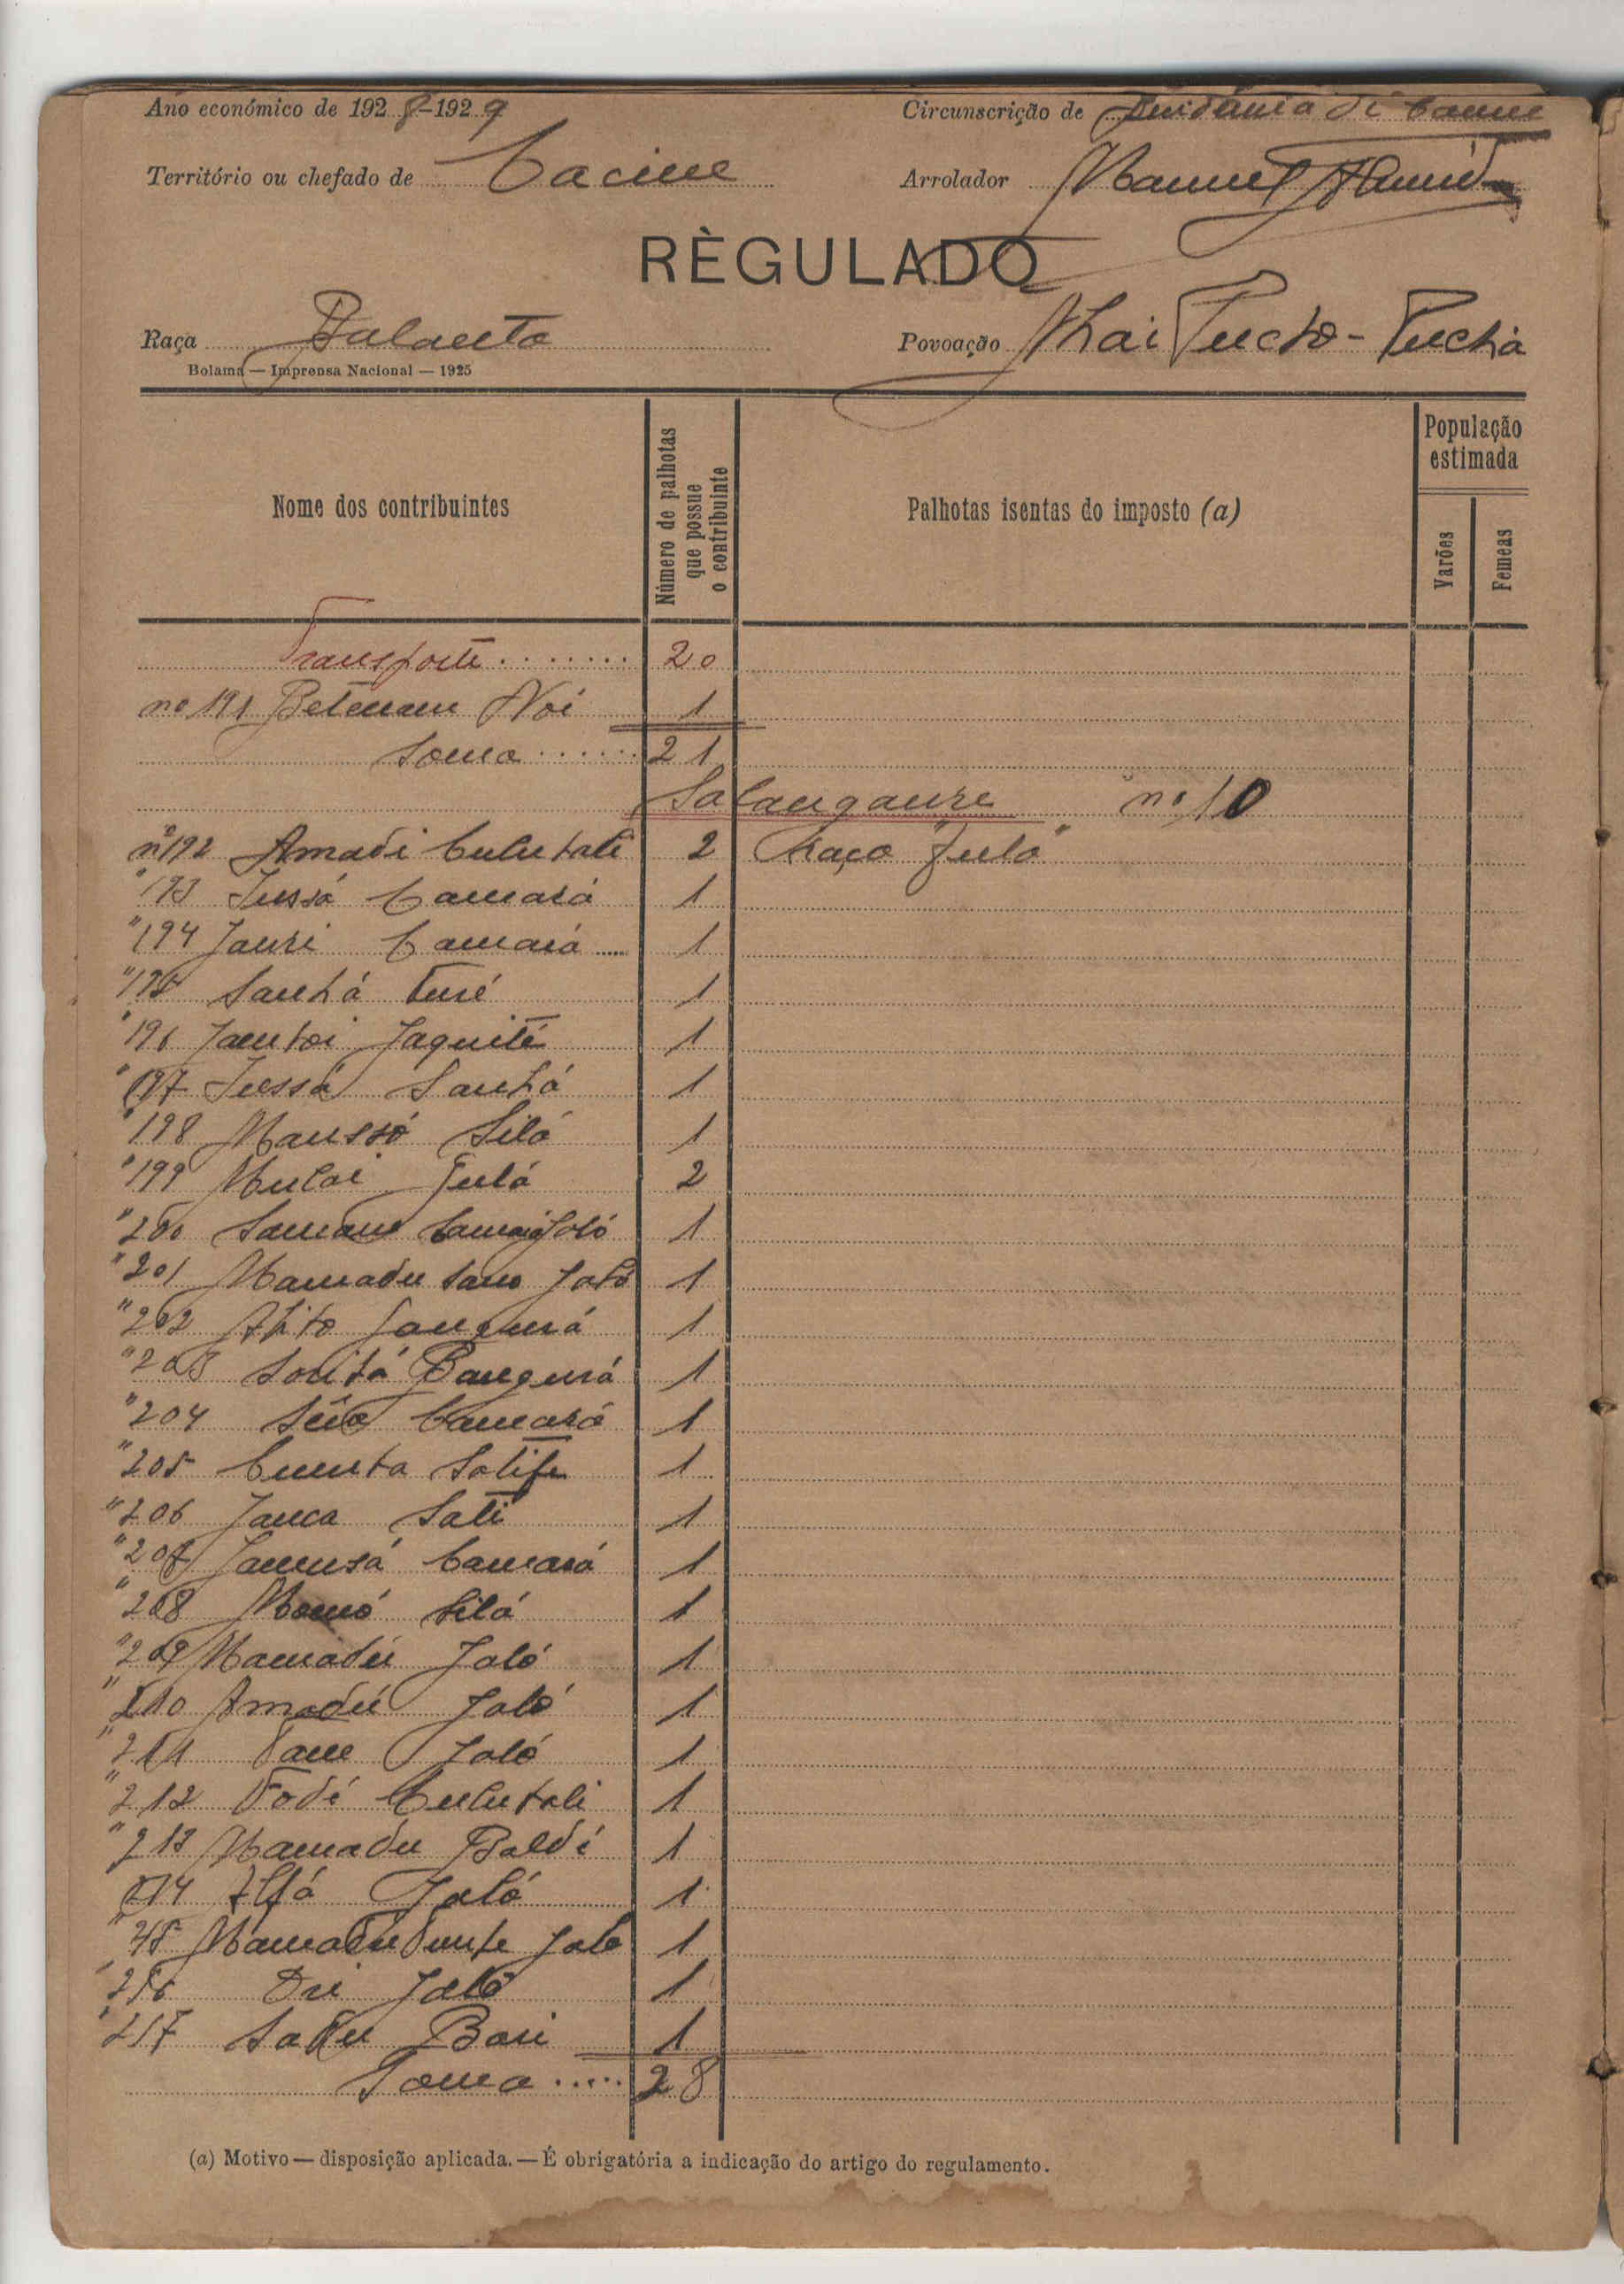 Ano económico de 1928-1929
Circunscrição de de Cacine
Território ou chefado de Cacine
Arrolador Manuel
RÈGULADO
Raça Balanta
Povoação
Bolama — Imprensa Nacional — 1925
Nome dos contribuintes
Número de palhotas que possue o contribuinte
Palhotas isentas do imposto (a)
População estimada
Varões
Femeas
Transporte ....... 20
nº 191 Betenam Noi 1
Soma ...... 21
Salanganre nº 10
nº 192 Amadi Culubali 2 Raça "Fula"
" 193 Jussá Camará 1
" 194 Janri Camará ..... 1
" 195 Sanhá Turé 1
" 196 Jamboi Jaquité 1
" 197 Jussá Sanhá 1
" 198 Manssó Silá 1
" 199 Mulai Fulá 2
" 200 Jaló 1
" 201 Mamadu Jaló 1
" 202 1
" 203 Bangurá 1
" 204 Camará 1
" 205 Cumba 1
" 206 Janca Sati 1
" 207 Jamusá Camará 1
" 208 Momó Silá 1
" 209 Mamadú Jaló 1
" 210 Amadú Jaló 1
" 211 Jaló 1
" 212 Fodé Culubali 1
" 213 Mamadu Baldé 1
214 Alfá Jaló 1
" 215 Mamadú Jaló 1
" 216 Ori Jaló 1
" 217 Bari 1
Soma ..... 28
(a) Motivo — disposição aplicada. — É obrigatória a indicação do artigo do regulamento.